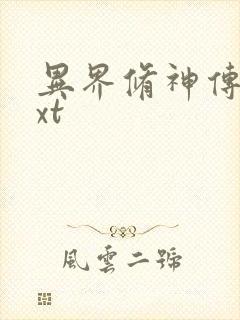 異界脩神傳
xt
風雲二號